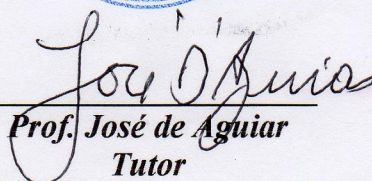 José D'Aguiar
Prof. José de Aguiar
Tutor